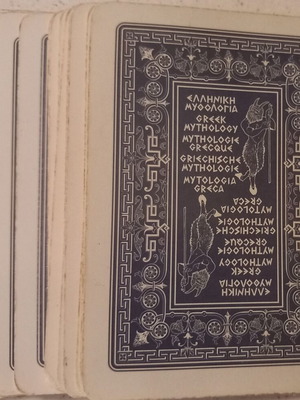 ΕΛΛΗΝΙΚΗ
ΜΥΘΟΛΟΓΙΑ
GREEK
MYTHOLOGY
MYTHOLOGIE
GRECQUE
GRIECHISCHE
MYTHOLOGIE
MYTOLOGIA
GRECA
ΕΛΛΗΝΙΚΗ
ΜΥΘΟΛΟΓΙΑ
GREEK
MYTHOLOGY
MYTHOLOGIE
GRECQUE
GRIECHISCHE
MYTHOLOGIE
MYTOLOGIA
GRECA